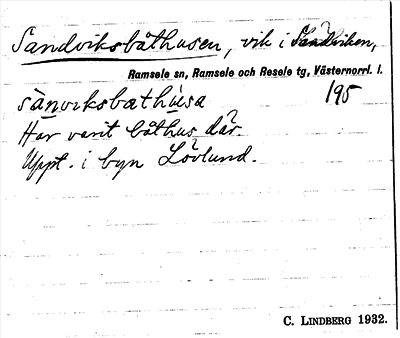 Sandviksbåthusen, vik i Sandviken,
Ramsele sn, Ramsele och Resele tg, Västernorrl. l.
sanviksbathusa 195
Har varit båthus där.
Uppt. i byn Lövlund.
C. LINDBERG 1932.